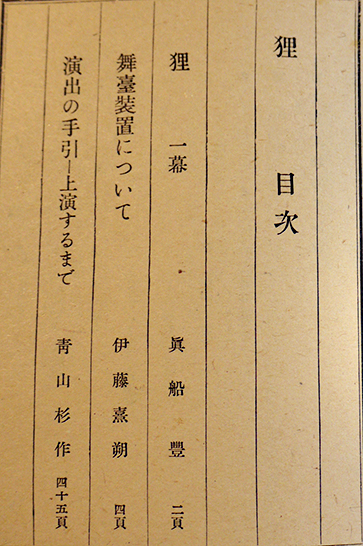 狸 目次
狸 一幕 眞船豐 二頁
舞臺装置について 伊藤熹朔 四頁
演出の手引―上演するまで 靑山杉作 四十五頁